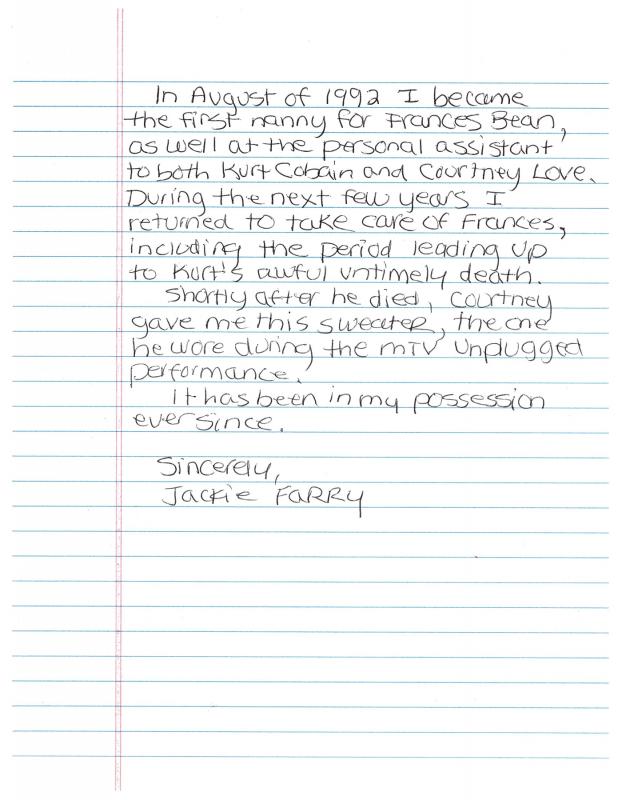 In August of 1992 I became
the first nanny for Frances Bean,
as well at the personal assistant
to both Kurt Cobain and Courtney Love.
During the next few years I
returned to take care of Frances,
including the period leading up
to Kurt's awful untimely death.
Shortly after he died, Courtney
gave me this sweater, the one
he wore during the MTV Unplugged
performance.
It has been in my possession
ever since.
Sincerely,
Jackie FARRY